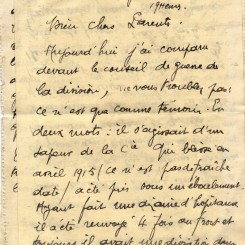 19 heures.
Bien chers Parents.
Aujourd'hui j'ai comparu
devant le conseil de guerre de
la division, ne vous troublez pas
ce n'est que comme témoin. En
deux mots : il s'agissait d'un
sapeur de la Cie qui blessé en
avril 1915 (ce n'est pas de fraîche
date) acte pris sous un éboulement
Ayant fait une dizaine d'hopitaux
il a été renvoyé 4 fois au front et
toujours il avait une